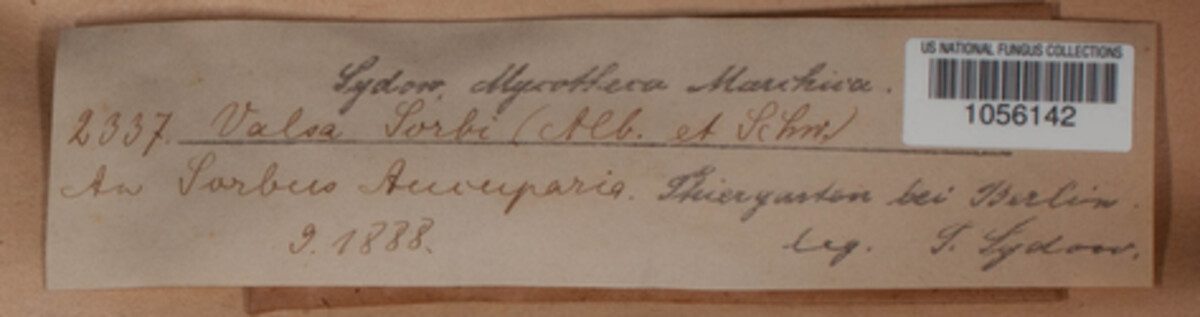 Sydow, Mycotheca Marchica.
US NATIONAL FUNGUS COLLECTIONS
1056142
2337. Valsa Sorbi (Alb. et Schw.)
An Sorbus Aucuparia. Thiergarten bei Berlin.
9. 1888.
leg. P. Sydow.